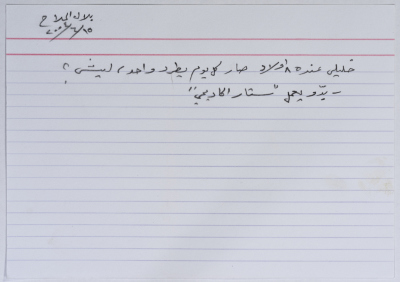 بلال الملاح
خليلي عنده ٨ اولاد صار كل يوم يطرد واحد، ليش ؟
- بدّو يعمل "ستار اكاديمي"